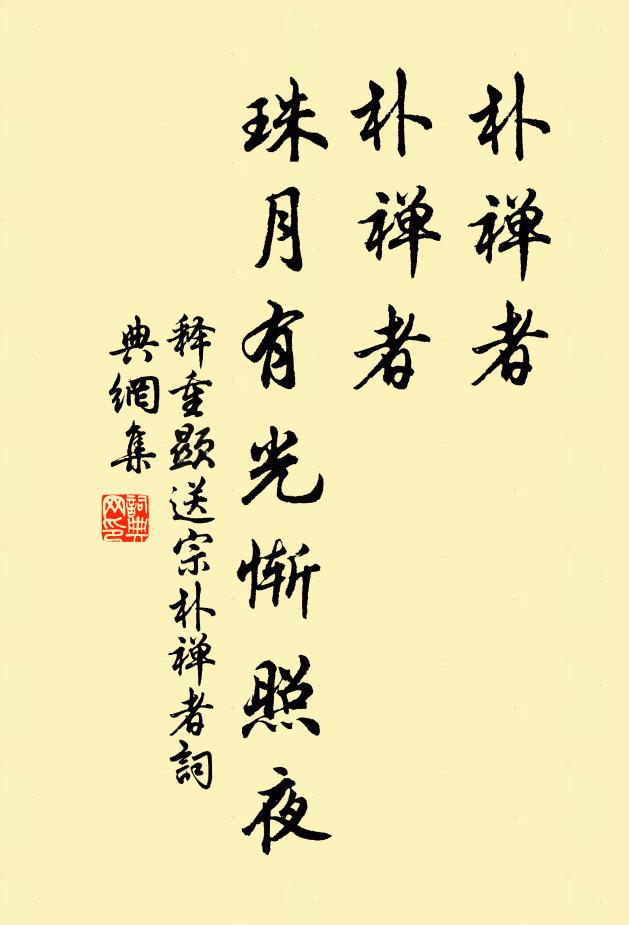 朴禅者
朴禅者
珠月有光惭照夜
释重显送宗朴禅者詞
典網集
詞典
网印